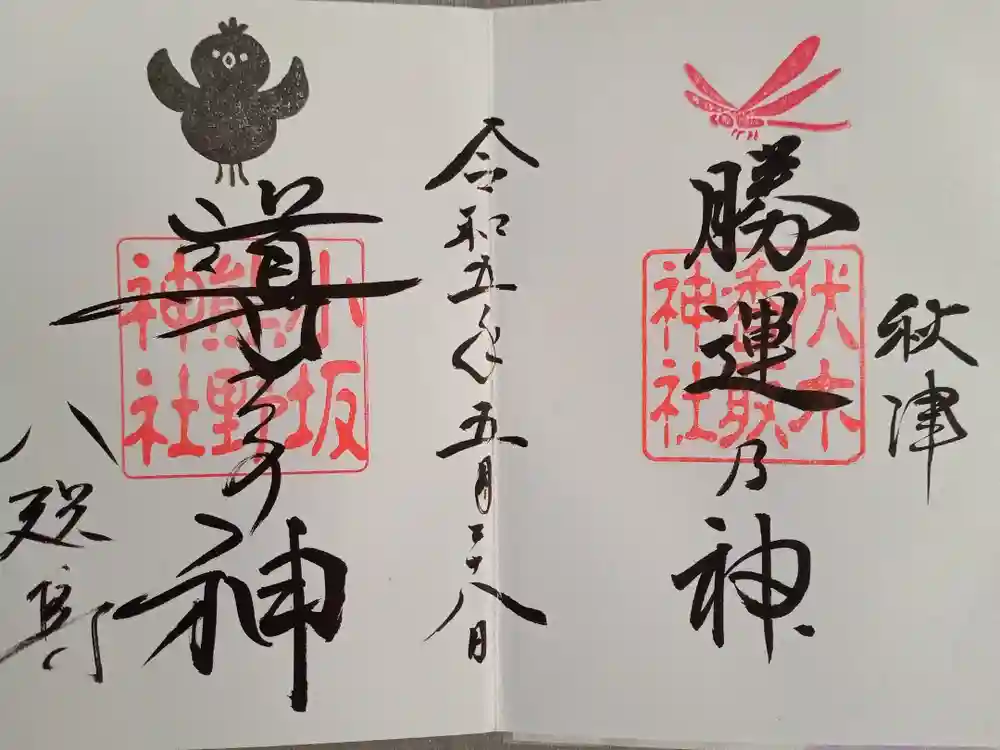 秋津
勝運乃神
伏木
香取
神社
令和五年五月二十八日
導きの神
小坂
熊野
神社
八